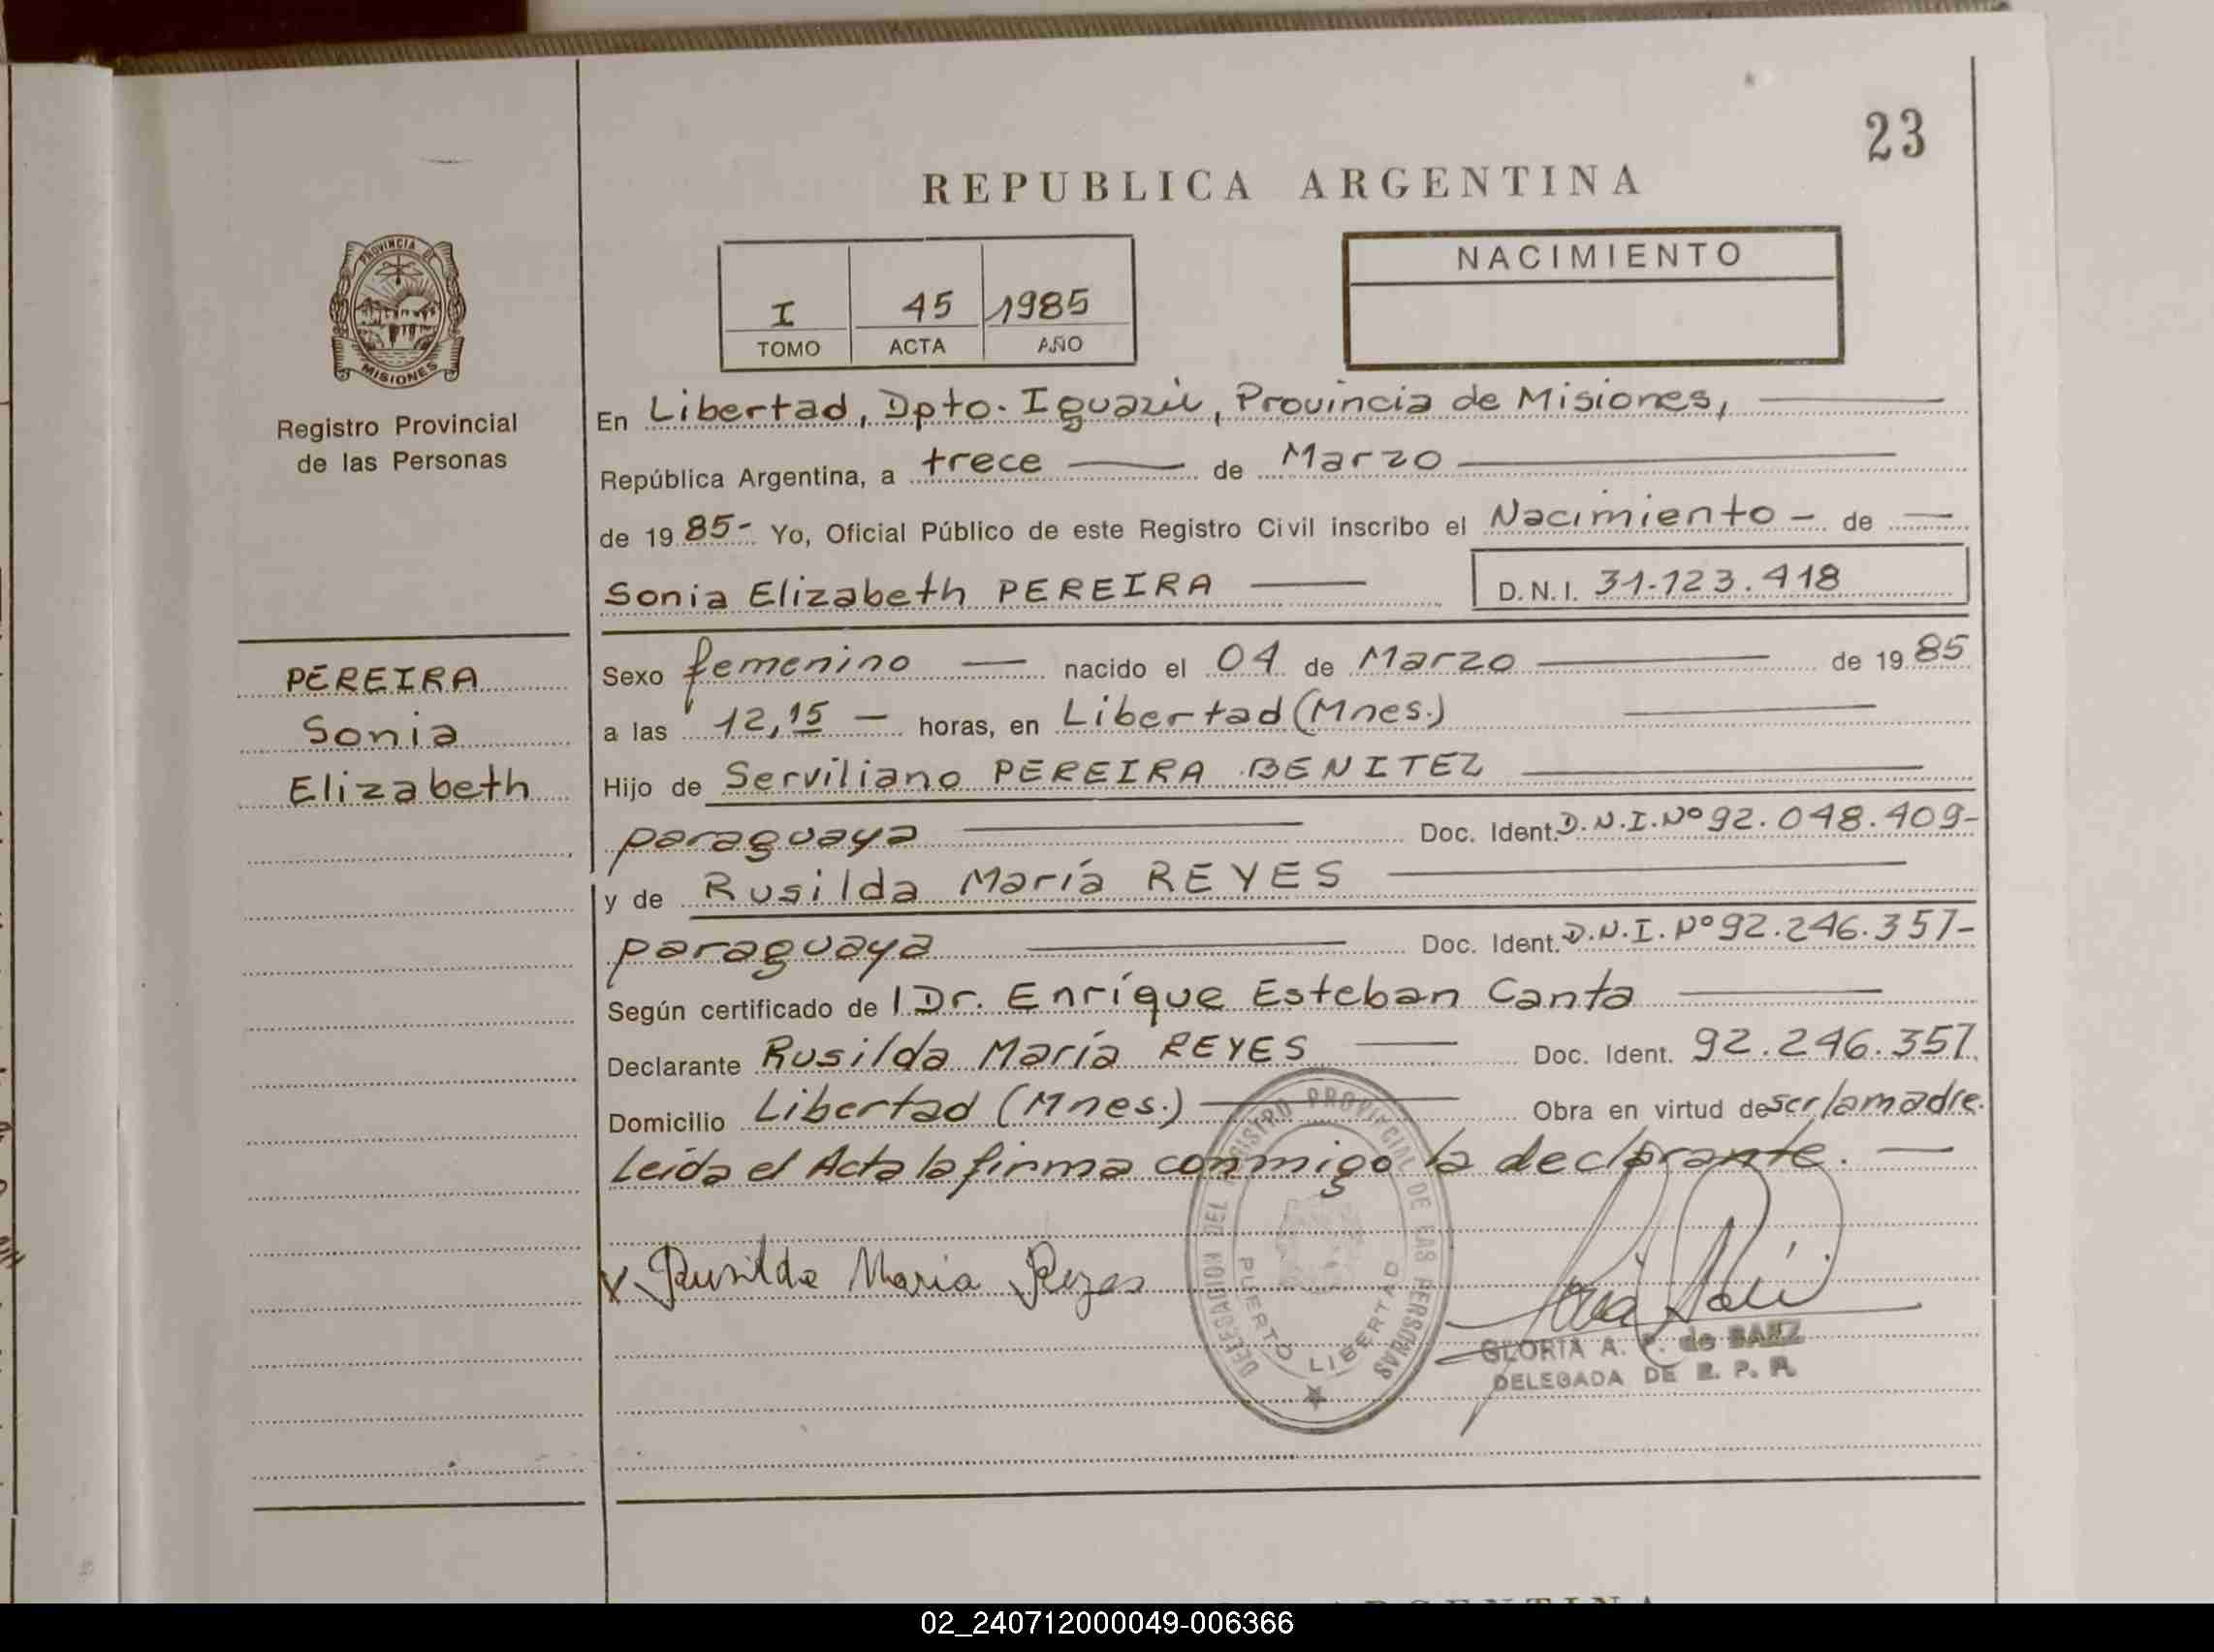 23
REPUBLICA ARGENTINA
PROVINCIA DE
MISIONES
Registro Provincial
de las Personas
I 45 1985
TOMO ACTA AÑO
NACIMIENTO
En Libertad, Dpto. Iguazú, Provincia de Misiones,
República Argentina, a trece de Marzo
de 1985- Yo, Oficial Público de este Registro Civil inscribo el Nacimiento - de
Sonia Elizabeth PEREIRA D.N.I. 31.123.418
PEREIRA
Sonia
Elizabeth
Sexo femenino nacido el 04 de Marzo de 1985
a las 12,15 - horas, en Libertad (Mnes.)
Hijo de Serviliano PEREIRA BENITEZ
paraguaya Doc. Ident. D.N.I. Nº 92.048.409-
y de Rusilda María REYES
paraguaya Doc. Ident. D.N.I. Nº 92.246.357-
Según certificado de l Dr. Enrique Esteban Canta
Declarante Rusilda María REYES Doc. Ident. 92.246.357.
Domicilio Libertad (Mnes.) Obra en virtud de ser la madre.
Leída el Acta la firma conmigo la declarante.
x Rusilda Maria Reyes
DELEGACION DEL REGISTRO PROVINCIAL DE LAS PERSONAS
PUERTO LIBERTAD
GLORIA A. P. de BAEZ
DELEGADA DE R. P. P.
02_240712000049-006366